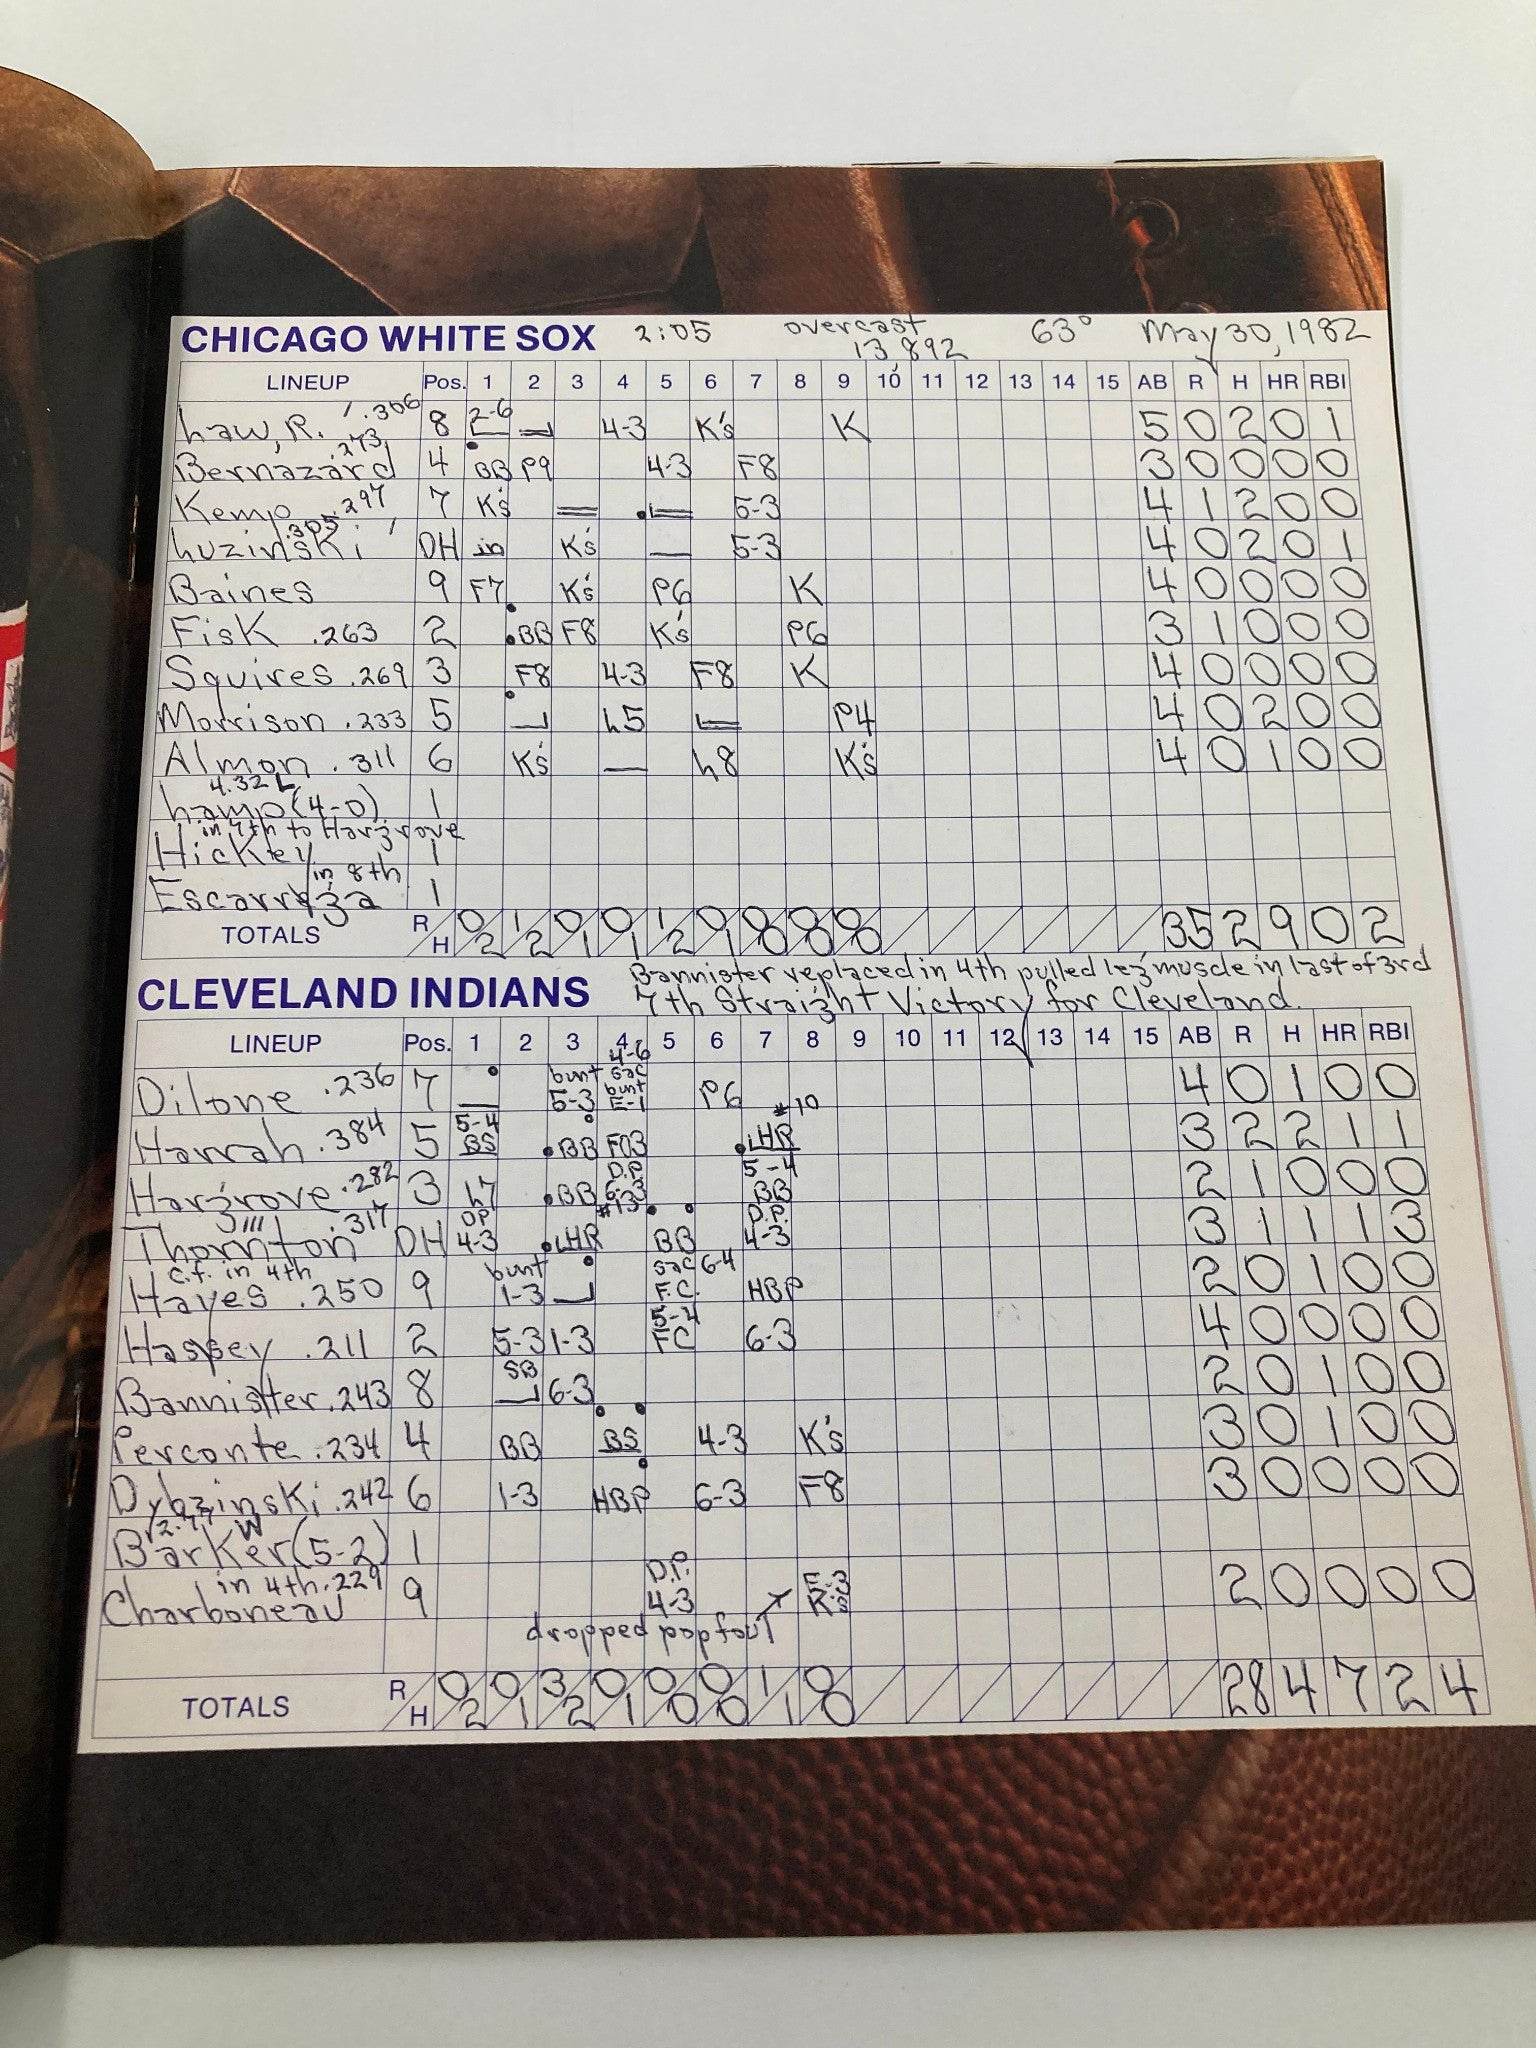 CHICAGO WHITE SOX 2:05 overcast 63° May 30, 1982
13,892
LINEUP Pos. 1 2 3 4 5 6 7 8 9 10 11 12 13 14 15 AB R H HR RBI
Law, R. .306 8 2-6 4-3 K's K 5 0 2 0 1
Bernazard .273 4 BB P9 4-3 F8 3 0 0 0 0
Kemp .297 7 K's 5-3 4 1 2 0 0
Luzinski .305 DH in K's 5-3 4 0 2 0 1
Baines 9 F7 K's P6 K 4 0 0 0 0
Fisk .263 2 BB F8 K's P6 3 1 0 0 0
Squires .269 3 F8 4-3 F8 K 4 0 0 0 0
Morrison .233 5 L5 P4 4 0 2 0 0
Almon .311 6 K's L8 K's 4 0 1 0 0
4.32 L
Lamp (4-0) 1
in 7th to Hargrove
Hickey 1
in 8th
Escarrega 1
TOTALS R/H 0/2 1/2 0/1 0/1 1/2 0/1 0/0 0/0 0/0 35 2 9 0 2
Bannister replaced in 4th pulled leg muscle in last of 3rd
CLEVELAND INDIANS 7th Straight Victory for Cleveland.
LINEUP Pos. 1 2 3 4 5 6 7 8 9 10 11 12 13 14 15 AB R H HR RBI
4-6
bunt sac
Dilone .236 7 5-3 bunt E-1 P6 4 0 1 0 0
5-4 #10
Harrah .384 5 BS BB FO3 HR 3 2 2 1 1
D.P. 5-4
Hargrove .282 3 L7 BB 6-3 BB 2 1 0 0 0
DP #13 D.P.
Thornton .317 DH 4-3 HR BB 4-3 3 1 1 1 3
c.f. in 4th bunt sac 6-4
Hayes .250 9 1-3 F.C. HBP 2 0 1 0 0
5-4
Hassey .211 2 5-3 1-3 FC 6-3 4 0 0 0 0
SB
Bannister .243 8 6-3 2 0 1 0 0
Perconte .234 4 BB BS 4-3 K's 3 0 1 0 0
Dybzinski .242 6 1-3 HBP 6-3 F8 3 0 0 0 0
2.77 W
Barker (5-2) 1
in 4th .229 D.P. E-3
Charboneau 9 4-3 K's 2 0 0 0 0
dropped pop foul
TOTALS R/H 0/2 0/1 3/2 0/1 0/0 0/0 1/1 0/0 28 4 7 2 4